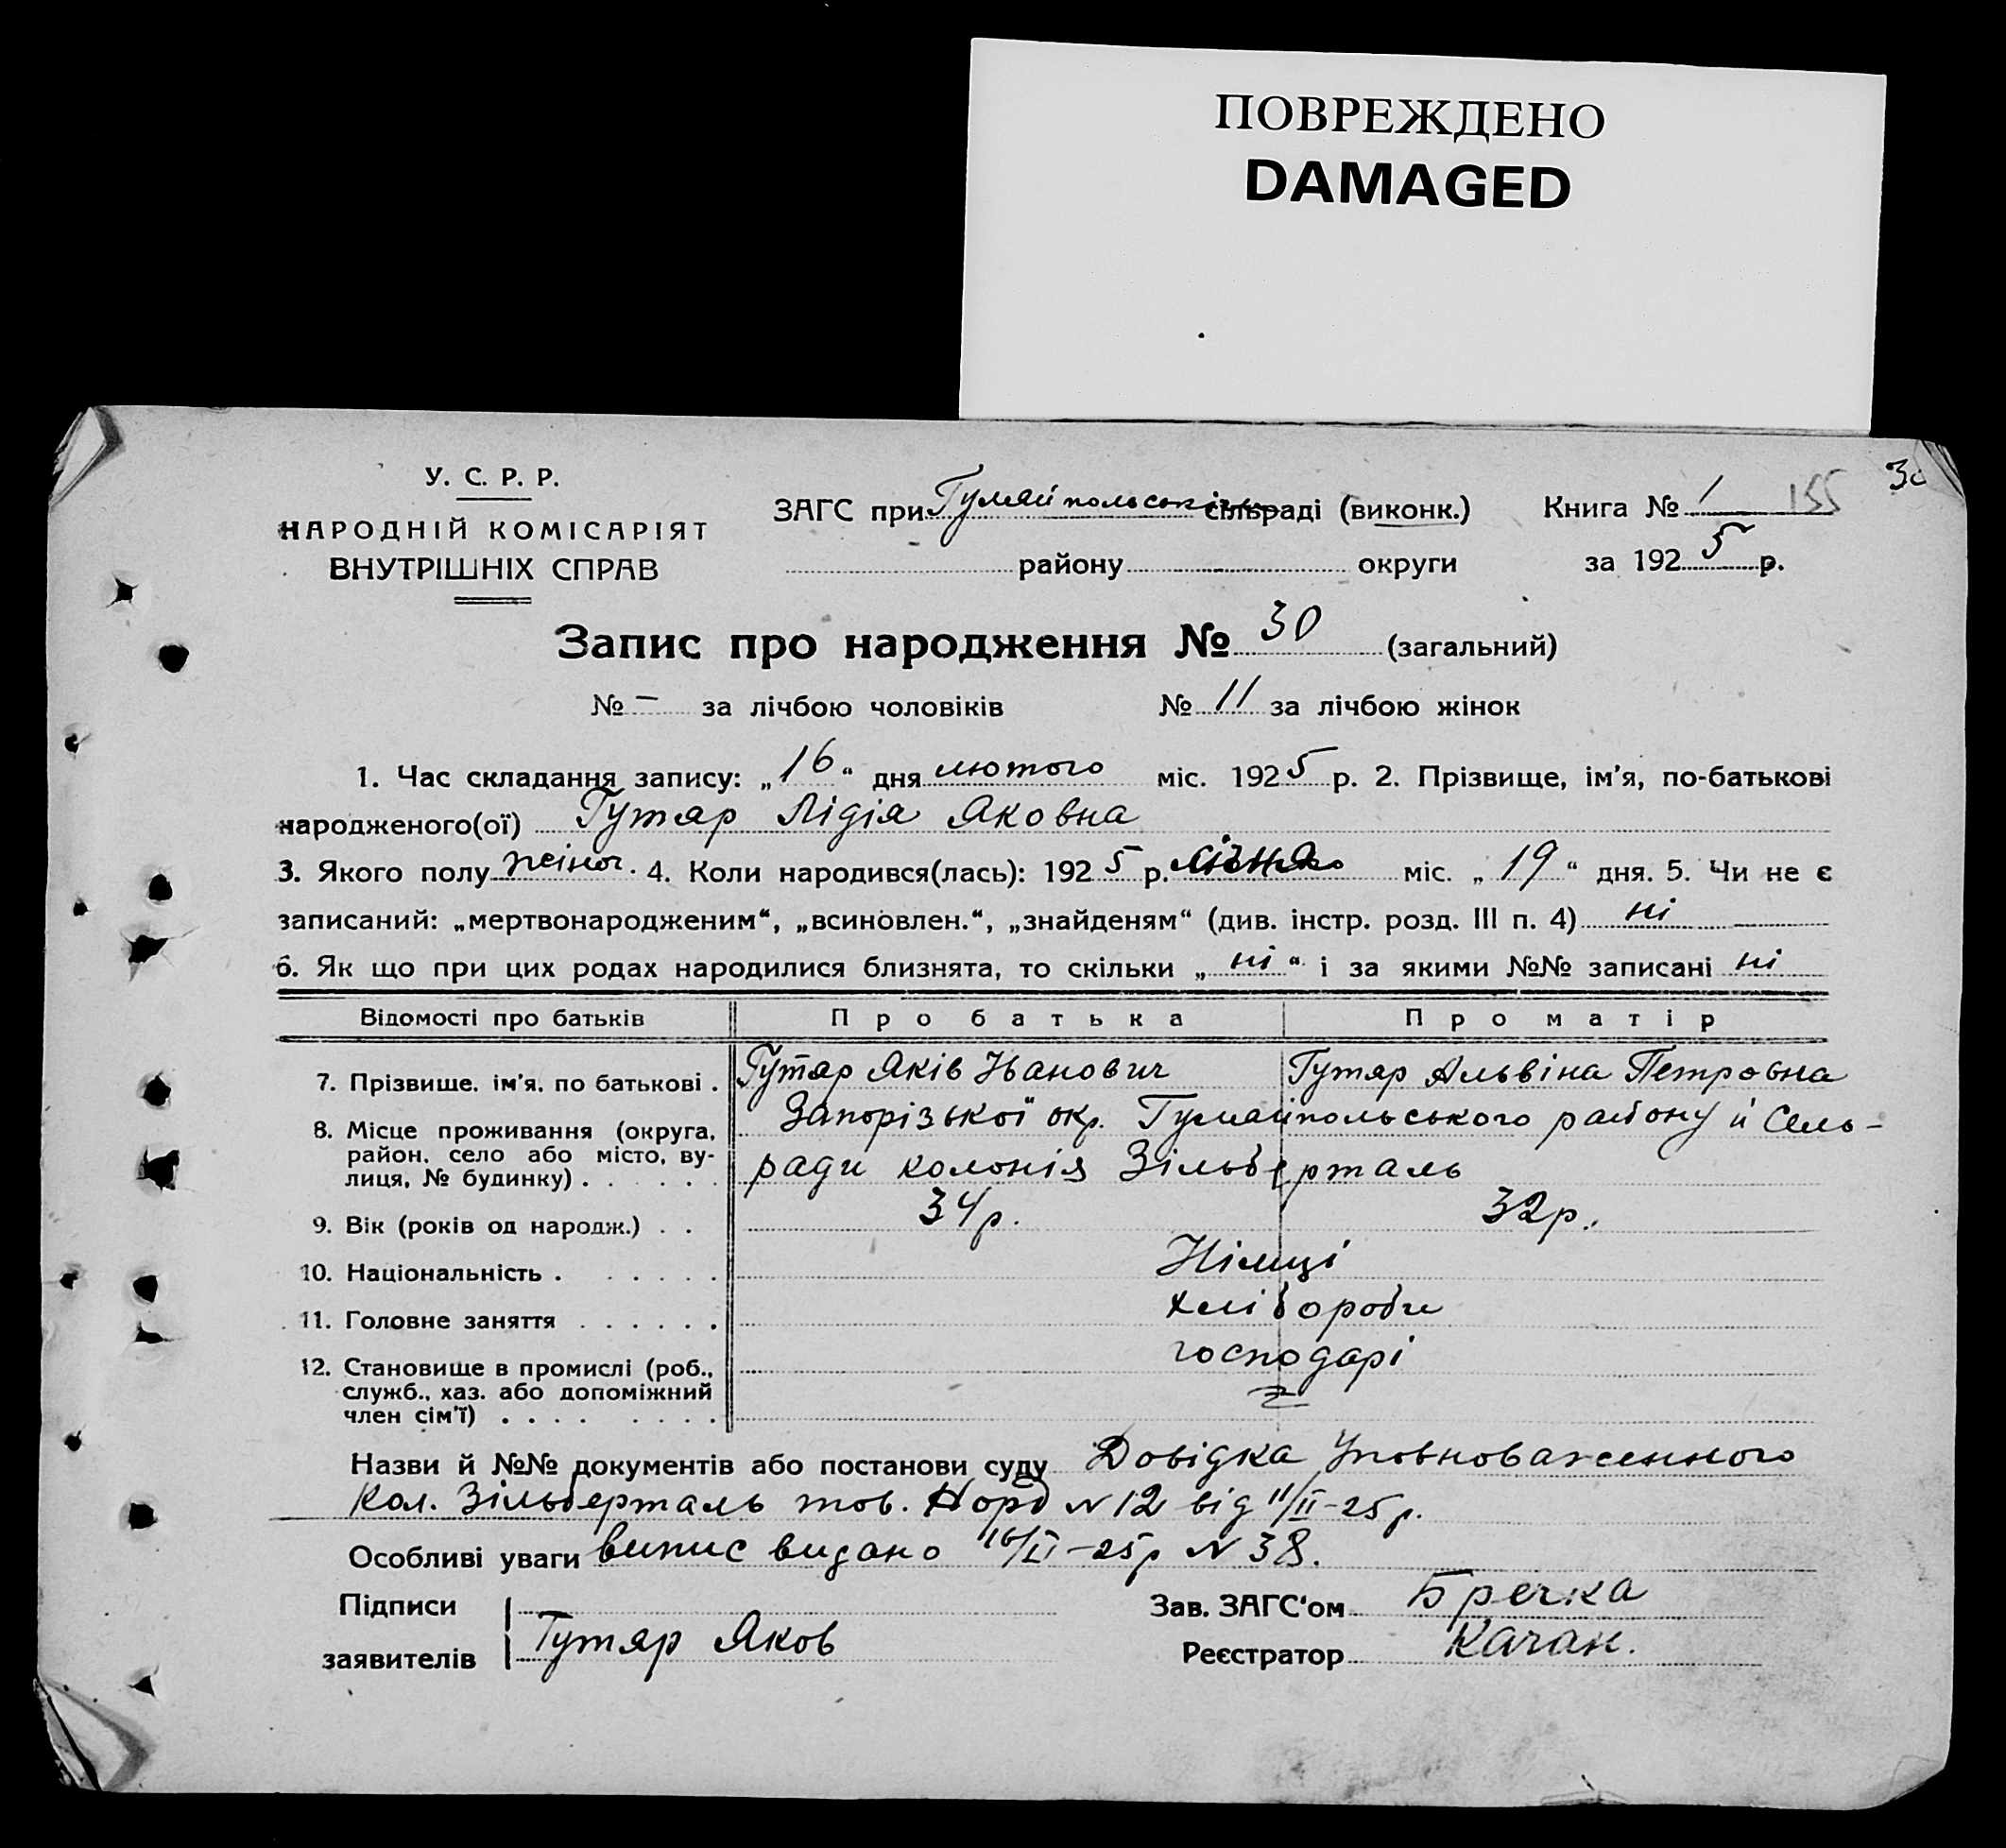 ПОВРЕЖДЕНО
DAMAGED
У. С. Р. Р.
НАРОДНІЙ КОМІСАРІЯТ
ВНУТРІШНІХ СПРАВ
ЗАГС при Гуляйпольськім сільраді (виконк.)
району округи
Книга № 1 155
за 1925 р.
Запис про народження № 30 (загальний)
№ – за лічбою чоловіків № 11 за лічбою жінок
1. Час складання запису: „16“ дня лютого міс. 1925 р. 2. Прізвище, ім'я, по-батькові
народженого(ої) Гутяр Лідія Яковна
3. Якого полу жіноч. 4. Коли народився(лась): 1925 р. січня міс. „19“ дня. 5. Чи не є
записаний: „мертвонародженим“, „всиновлен.“, „знайденям“ (див. інстр. розд. III п. 4) ні
6. Як що при цих родах народилися близнята, то скільки „ні“ і за якими №№ записані ні
Відомості про батьків Про батька Про матір
7. Прізвище, ім'я, по батькові . Гутяр Яків Іванович Гутяр Альвіна Петровна
8. Місце проживання (округа, район, село або місто, вулиця, № будинку) . . . . . . Запорізької окр. Гуляйпольського району й Сель-
ради колонія Зільберталь
9. Вік (років од народж.) . . 34 р. 32 р.
10. Національність . . . . . . . Німці
11. Головне заняття . . . . . . хлібороби
12. Становище в промислі (роб., служб., хаз. або допоміжний член сім'ї) . . . . . . . . господарі
Назви й №№ документів або постанови суду Довідка Уповноваженного
Кол. Зільберталь тов. Норд N 12 від 11/II–25 р.
Особливі уваги випис видано 16/II–25 р N 38.
Підписи
заявителів Гутяр Яков
Зав. ЗАГС'ом Бречка
Реєстратор Качан.